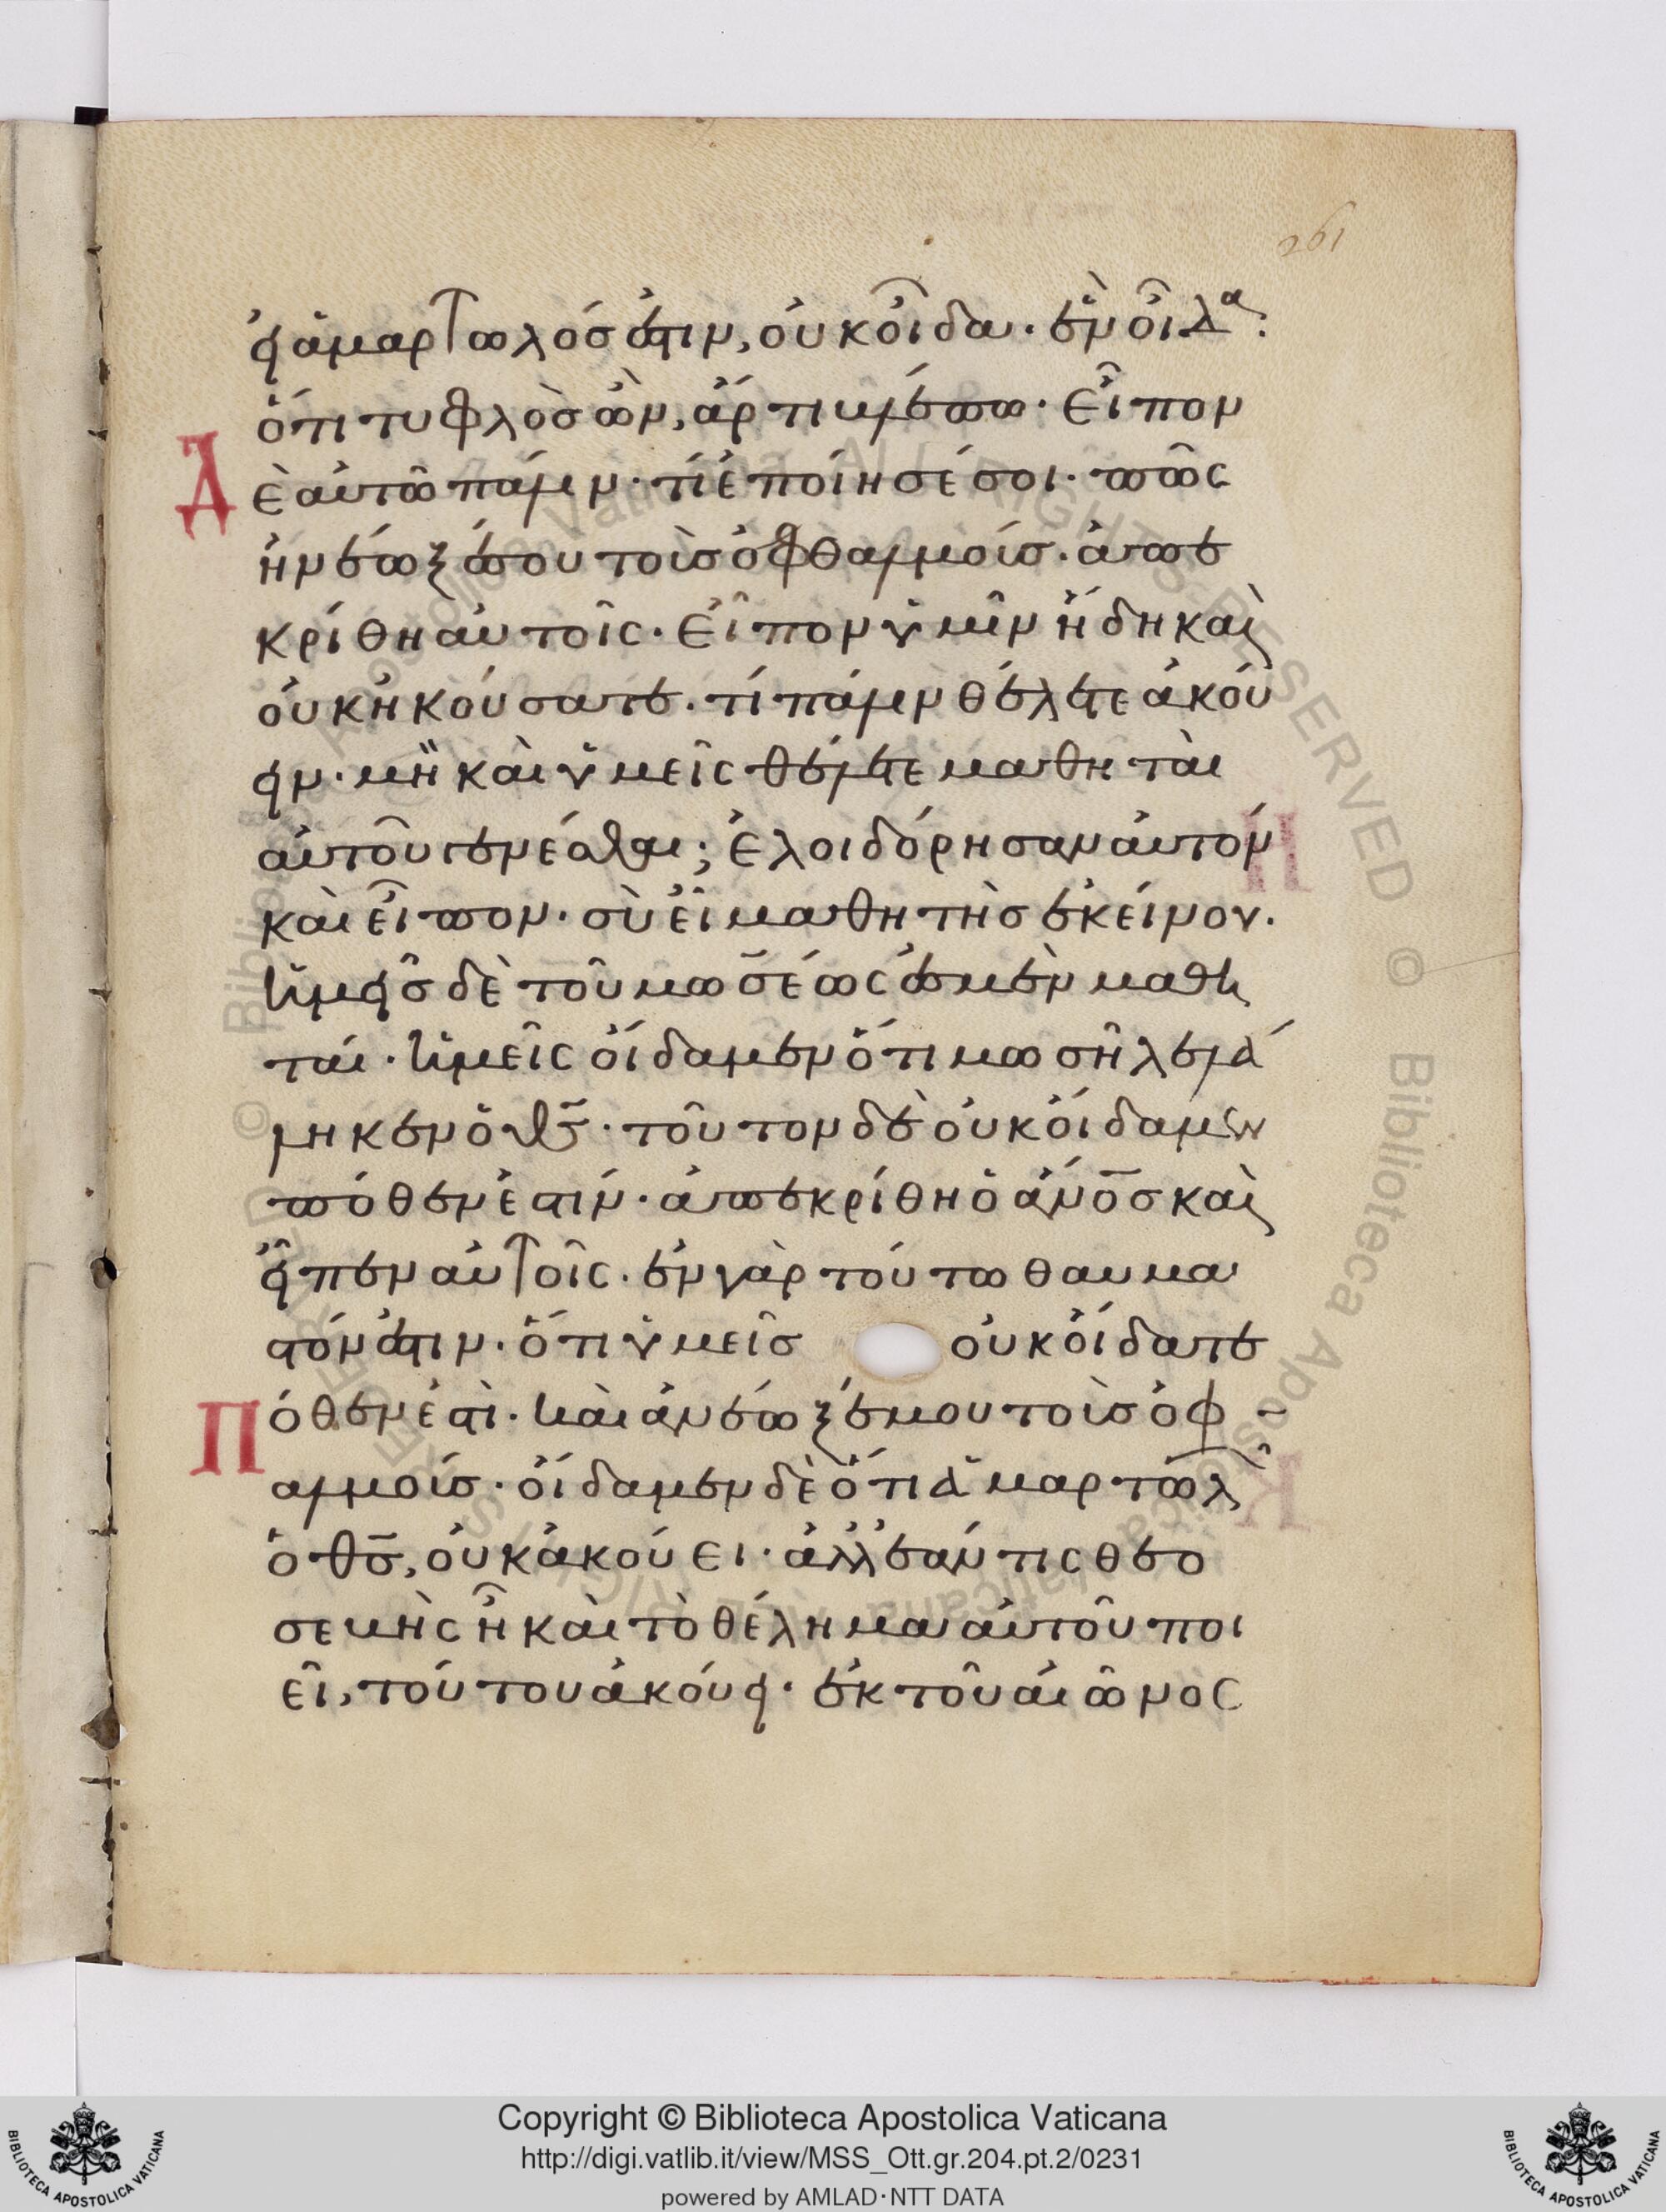 261
εἰ ἁμαρτωλός ἐστιν, οὐκ οἶδα· ἓν οἶδα:
ὅτι τυφλὸς ὢν, ἄρτι βλέπω· Εἶπον
Δ ὲ αὐτῶ πάλιν· τί ἐποίησέ σοι· πῶς
ἠνέωξέ σου τοὺς ὀφθαλμούς· ἀπε
κρίθη αὐτοῖς· Εἶπον ὑμῖν ἤδη καὶ
οὐκ ἠκούσατε· τί πάλιν θέλετε ἀκού
ειν· μὴ καὶ ὑμεῖς θέλετε μαθηταὶ
αὐτοῦ γενέσθαι; Ἐλοιδόρησαν αὐτόν
καὶ εἶπον· σὺ εἶ μαθητὴς ἐκείνου·
ἡμεῖς δὲ τοῦ μωσέως ἐσμὲν μαθη
ταί· ἡμεῖς οἴδαμεν ὅτι μωσῆ λελά
ληκεν ὁ θς̅· τοῦτον δὲ οὐκ οἴδαμεν
πόθεν ἐστίν· ἀπεκρίθη ὁ ἄνος̅ καὶ
εἶπεν αὐτοῖς· ἐν γὰρ τούτω θαυμα
στόν ἐστιν· ὅτι ὑμεῖς οὐκ οἴδατε
Π όθεν ἐστὶ· καὶ ἀνέωξέ μου τοὺς ὀφ-
αλμούς· οἴδαμεν δὲ ὅτι ἁμαρτωλῶ
ὁ θς̅, οὐκ ἀκούει· ἀλλ' ἐάν τις θεο
σεβὴς ἦ καὶ τὸ θέλημα αὐτοῦ ποι
εῖ, τούτου ἀκούει· ἐκ τοῦ αἰῶνος
© Biblioteca Apostolica Vaticana ALL RIGHTS RESERVED
Copyright © Biblioteca Apostolica Vaticana
http://digi.vatlib.it/view/MSS_Ott.gr.204.pt.2/0231
powered by AMLAD·NTT DATA
BIBLIOTECA APOSTOLICA VATICANA
BIBLIOTECA APOSTOLICA VATICANA